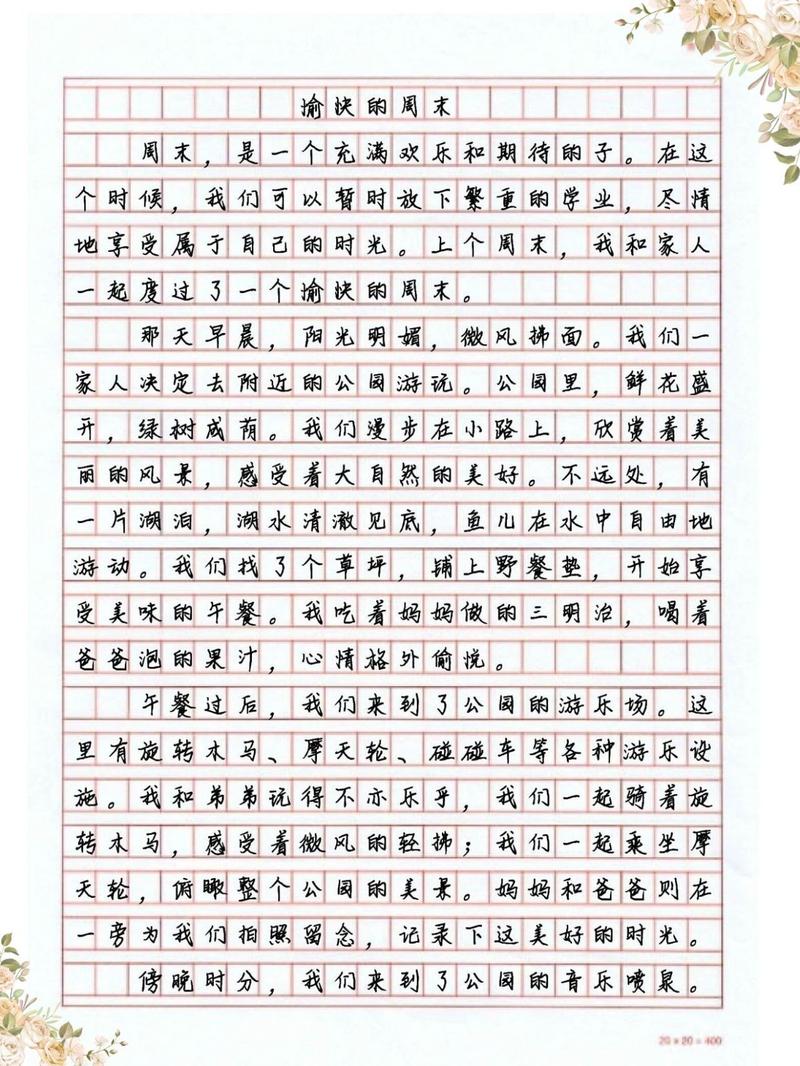 愉快的周末
周末，是一个充满欢乐和期待的子。在这
个时候，我们可以暂时放下繁重的学业，尽情
地享受属于自己的时光。上个周末，我和家人
一起度过了一个愉快的周末。
那天早晨，阳光明媚，微风拂面。我们一
家人决定去附近的公园游玩。公园里，鲜花盛
开，绿树成荫。我们漫步在小路上，欣赏着美
丽的风景，感受着大自然的美好。不远处，有
一片湖泊，湖水清澈见底，鱼儿在水中自由地
游动。我们找了个草坪，铺上野餐垫，开始享
受美味的午餐。我吃着妈妈做的三明治，喝着
爸爸泡的果汁，心情格外愉悦。
午餐过后，我们来到了公园的游乐场。这
里有旋转木马、摩天轮、碰碰车等各种游乐设
施。我和弟弟玩得不亦乐乎，我们一起骑着旋
转木马，感受着微风的轻拂；我们一起乘坐摩
天轮，俯瞰整个公园的美景。妈妈和爸爸则在
一旁为我们拍照留念，记录下这美好的时光。
傍晚时分，我们来到了公园的音乐喷泉。
20×20=400